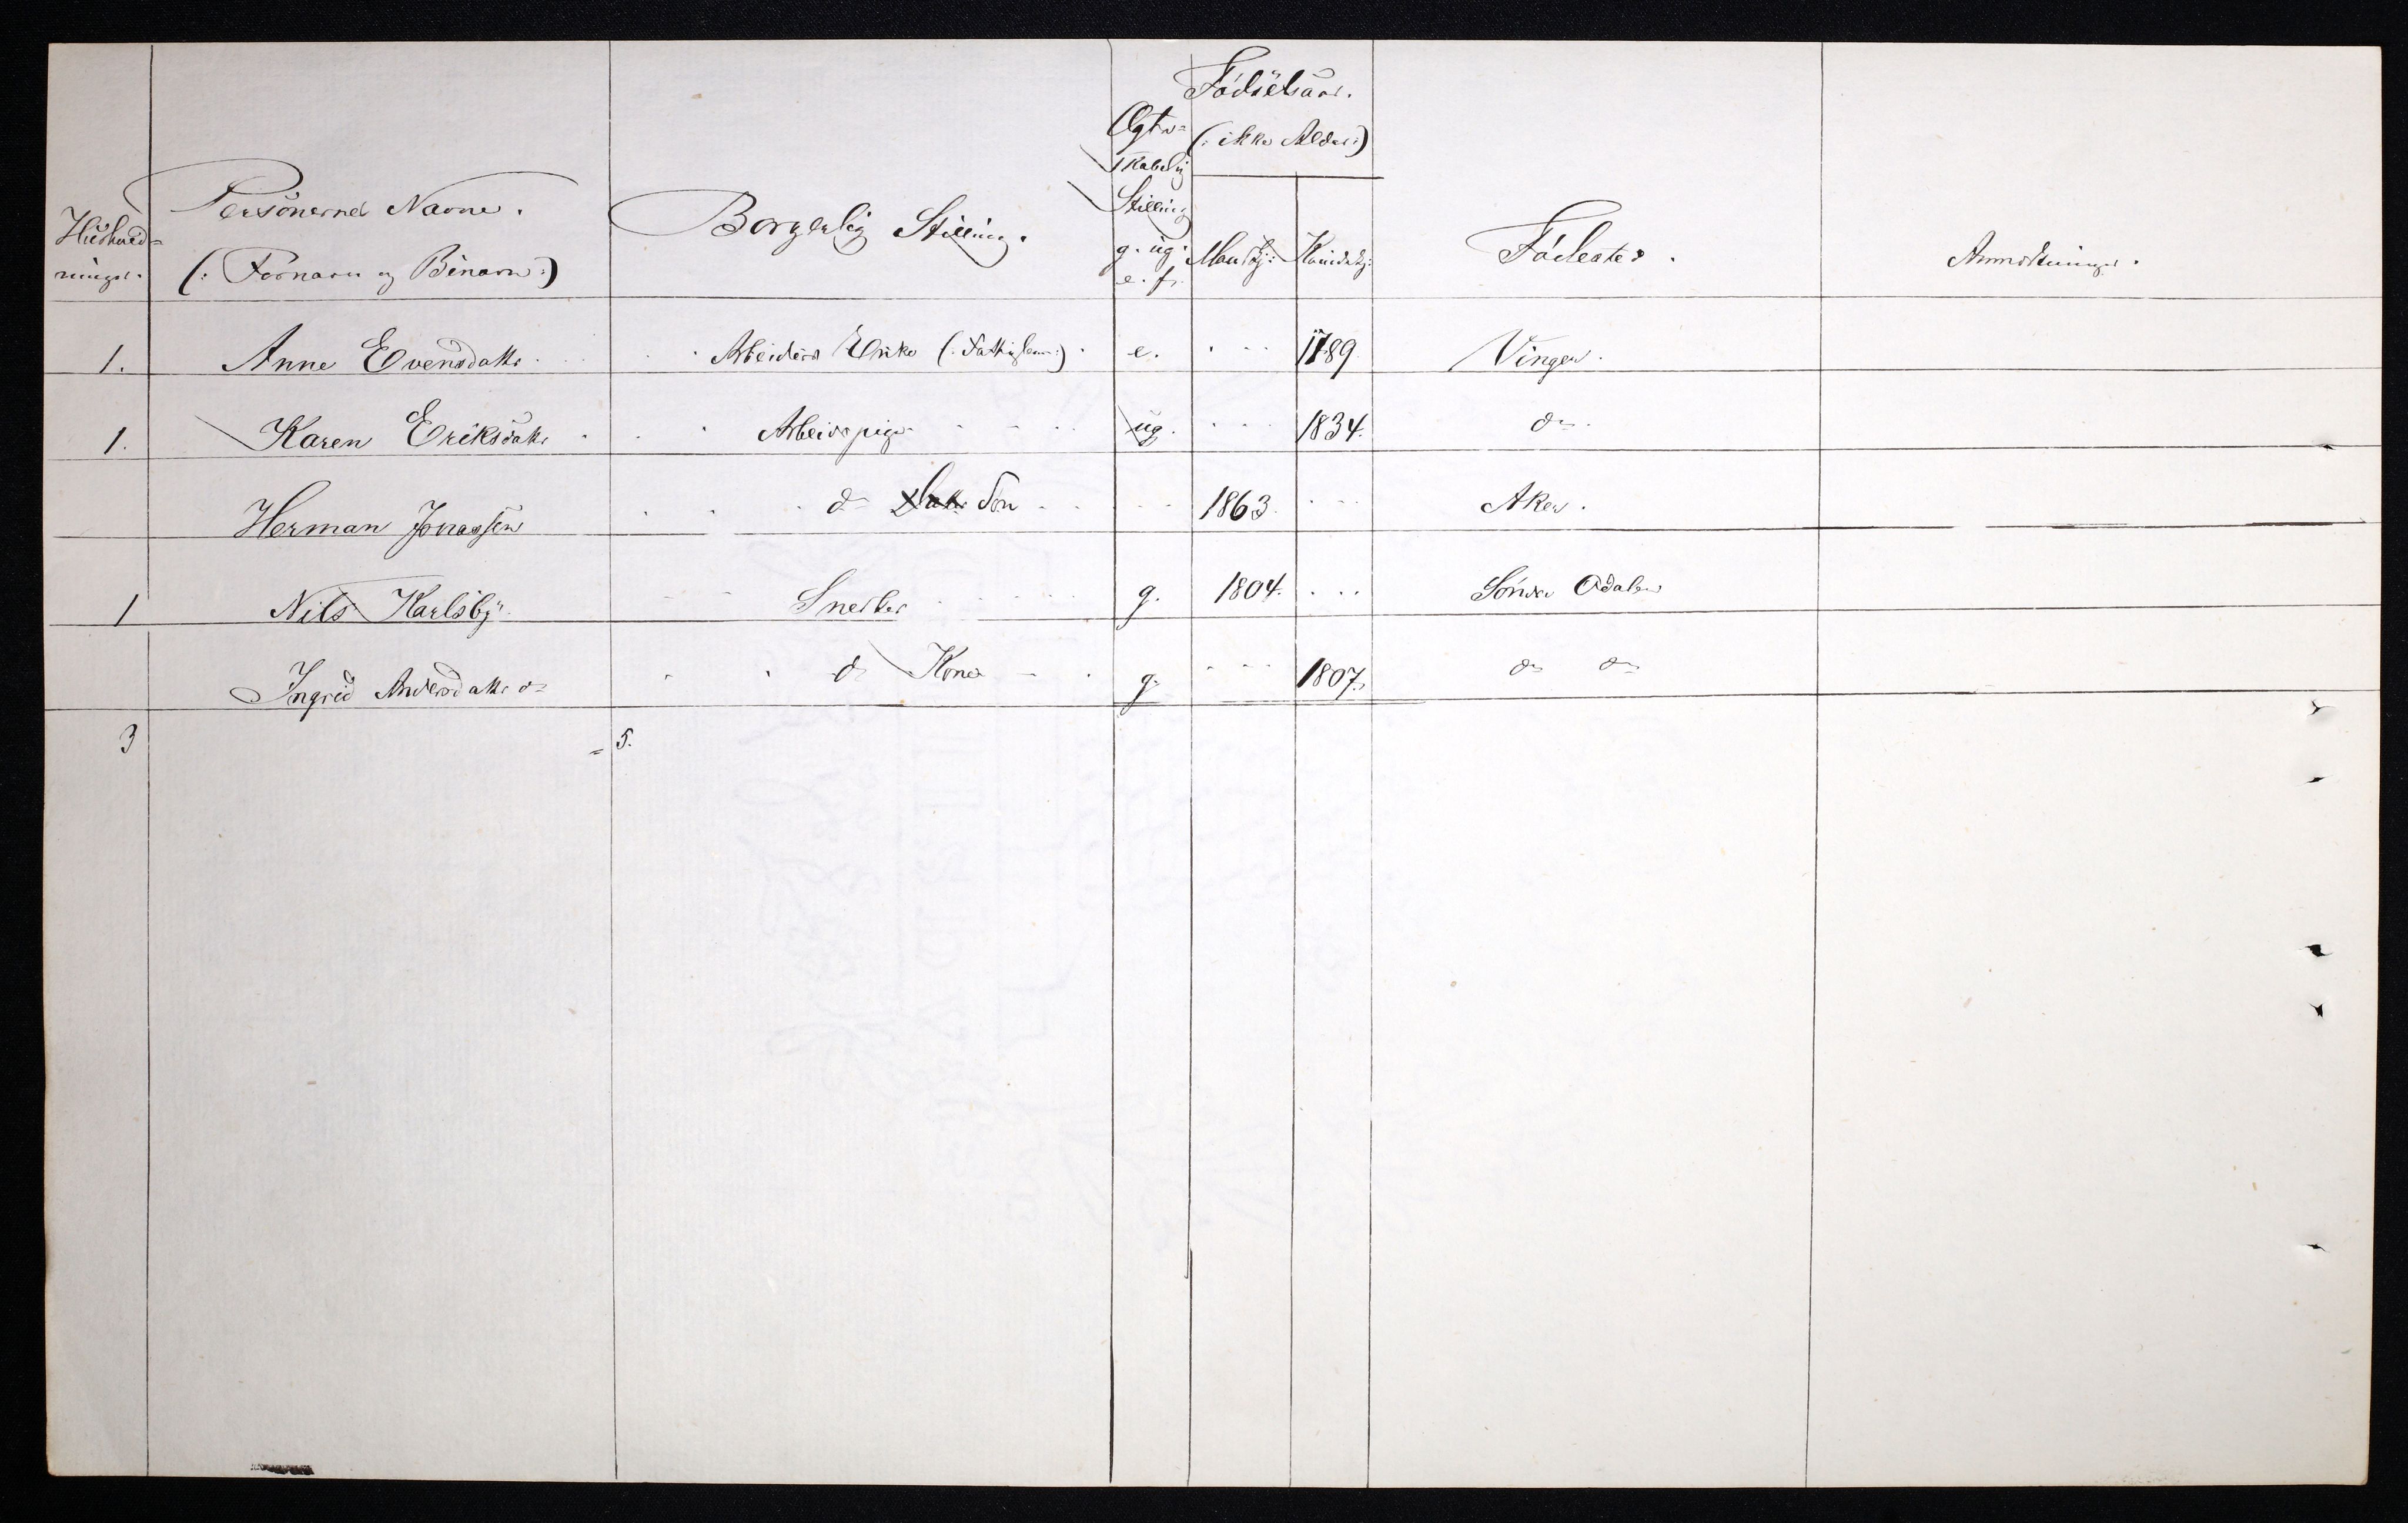 Fødselsaar.
Ægte=
(: ikke Alder :)
skabelig
Personernes Navne.
Stilling
Hushold=
Borgerlig Stilling.
g. ug.
Mandkj:
Kvindekj:
Fødested.
Anmærkninger.
ninger.
(: Fornavn og Binavn :)
e. f.
1. Anne Evensdatter Arbeiders Enke (: Fattiglem :) e. 1789 Vinger.
1. Karen Eriksdatter Arbeidspige ug. 1834. do
Herman Jonassen do Datter Søn 1863. Aker.
1 Nils Karlsby Snedker g. 1804. Søndre Odalen
Ingrid Andersdatter do Kone g. 1807. do do
3 = 5.